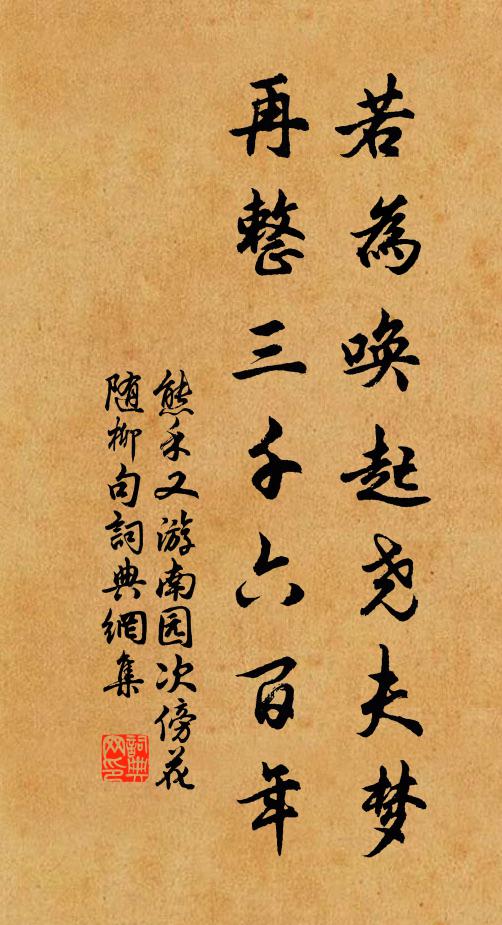 若為唤起尧夫梦
再整三千六百年
熊禾又游南园次傍花
随柳句詞典網集
詞典
网印